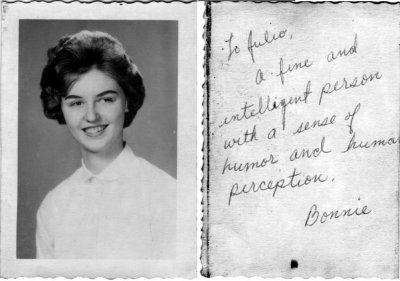 To Julio,
A fine and
intelligent person
with a sense of
humor and human
perception.
Bonnie